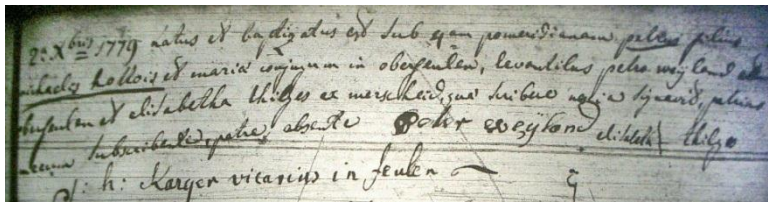 2: Xbris 1779 natus et baptizatus est sub pomeridianam petrus filius
michaelis Kollois et maria conjugum in oberfeulen, levantibus petro weyland ex
oberfeulen et elisabetha thilges ex merscheid, quae scribere signavit, petrus
mecum subscribente, patre absente Peter weÿland elisabeth thilges
J: h: Karger vicarius in feulen